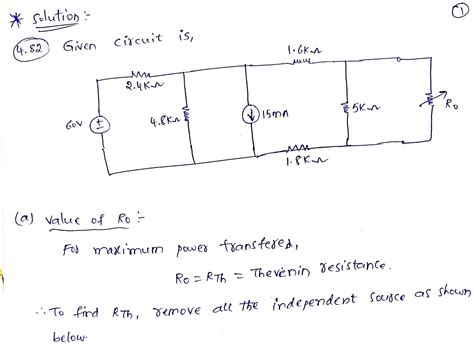 * Solution :-
①
4.82 Given circuit is,
1.6KΩ
2.4KΩ
60V
4.8KΩ
15mA
5KΩ
Ro
1.8KΩ
(a) value of Ro :-
For maximum power transfered,
Ro = RTh = Thevenin resistance.
∴ To find RTh, remove all the independent source as shown
below.